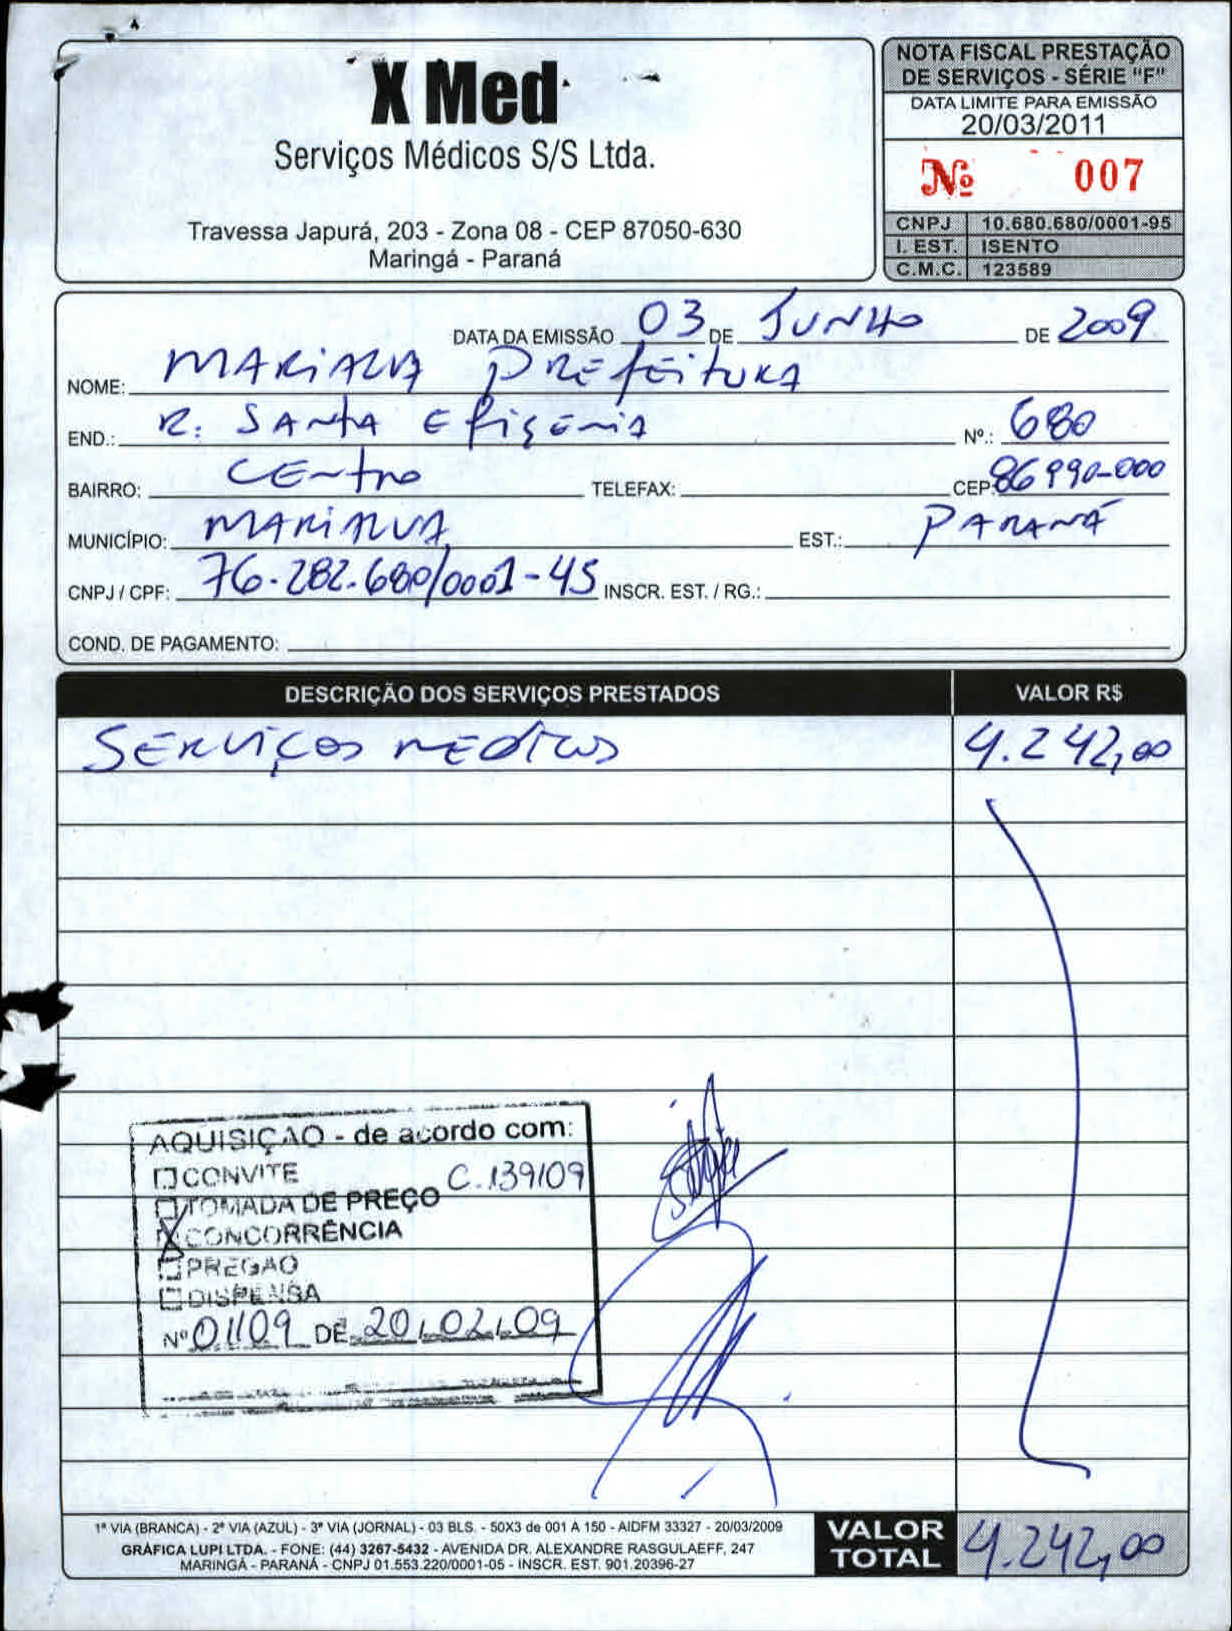 X Med
Serviços Médicos S/S Ltda.
Travessa Japurá, 203 - Zona 08 - CEP 87050-630
Maringá - Paraná
NOTA FISCAL PRESTAÇÃO
DE SERVIÇOS - SÉRIE "F"
DATA LIMITE PARA EMISSÃO
20/03/2011
Nº 007
CNPJ 10.680.680/0001-95
I. EST. ISENTO
C.M.C. 123589
DATA DA EMISSÃO 03 DE JUNHO DE 2009
NOME: MARIALVA PREFEITURA
END.: R. SANTA EFIGENIA Nº.: 680
BAIRRO: CENTRO TELEFAX: CEP: 86990-000
MUNICÍPIO: MARIALVA EST.: PARANÁ
CNPJ / CPF: 76.282.680/0001-45 INSCR. EST. / RG.:
COND. DE PAGAMENTO:
DESCRIÇÃO DOS SERVIÇOS PRESTADOS VALOR R$
SERVIÇOS MEDICOS 4.242,00
AQUISIÇÃO - de acordo com:
CONVITE C.139/09
TOMADA DE PREÇO
CONCORRÊNCIA
PREGAO
DISPENSA
Nº 01/09 DE 20/02/09
1ª VIA (BRANCA) - 2ª VIA (AZUL) - 3ª VIA (JORNAL) - 03 BLS. - 50X3 de 001 A 150 - AIDFM 33327 - 20/03/2009
GRÁFICA LUPI LTDA. - FONE: (44) 3267-5432 - AVENIDA DR. ALEXANDRE RASGULAEFF, 247
MARINGÁ - PARANÁ - CNPJ 01.553.220/0001-05 - INSCR. EST. 901.20396-27
VALOR TOTAL 4.242,00